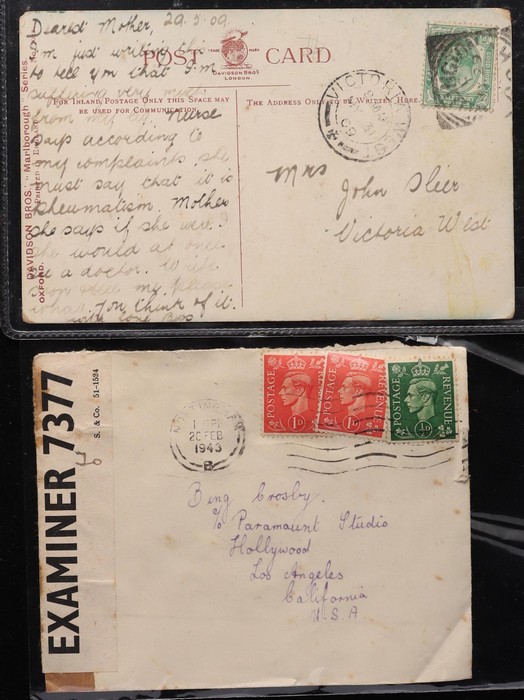 Dearest Mother, 29.5.09
I'm just writing
to tell you that I'm
suffering very much
from my leg, Nurse
says according to
my complaints she
must say that it is
Rheumatism. Mother
she says if she were
she would at once
a doctor. Write
soon tell me please
what you think of it.
with love
POST CARD
TRADE MARK
DAVIDSON BROS.
LONDON.
FOR INLAND POSTAGE ONLY THIS SPACE MAY
BE USED FOR COMMUNICATION.
THE ADDRESS ONLY TO BE WRITTEN HERE.
DAVIDSON BROS.' "Marlborough" Series
OXFORD.
VICTORIA WEST
09
Mrs John Sleer
Victoria West
EXAMINER 7377
S. & Co. 51-1524
25 FEB
1943
B
POSTAGE REVENUE
1D
POSTAGE REVENUE
1D
POSTAGE REVENUE
½D
Bing Crosby.
c/o Paramount Studio
Hollywood
Los Angeles
California
U.S.A